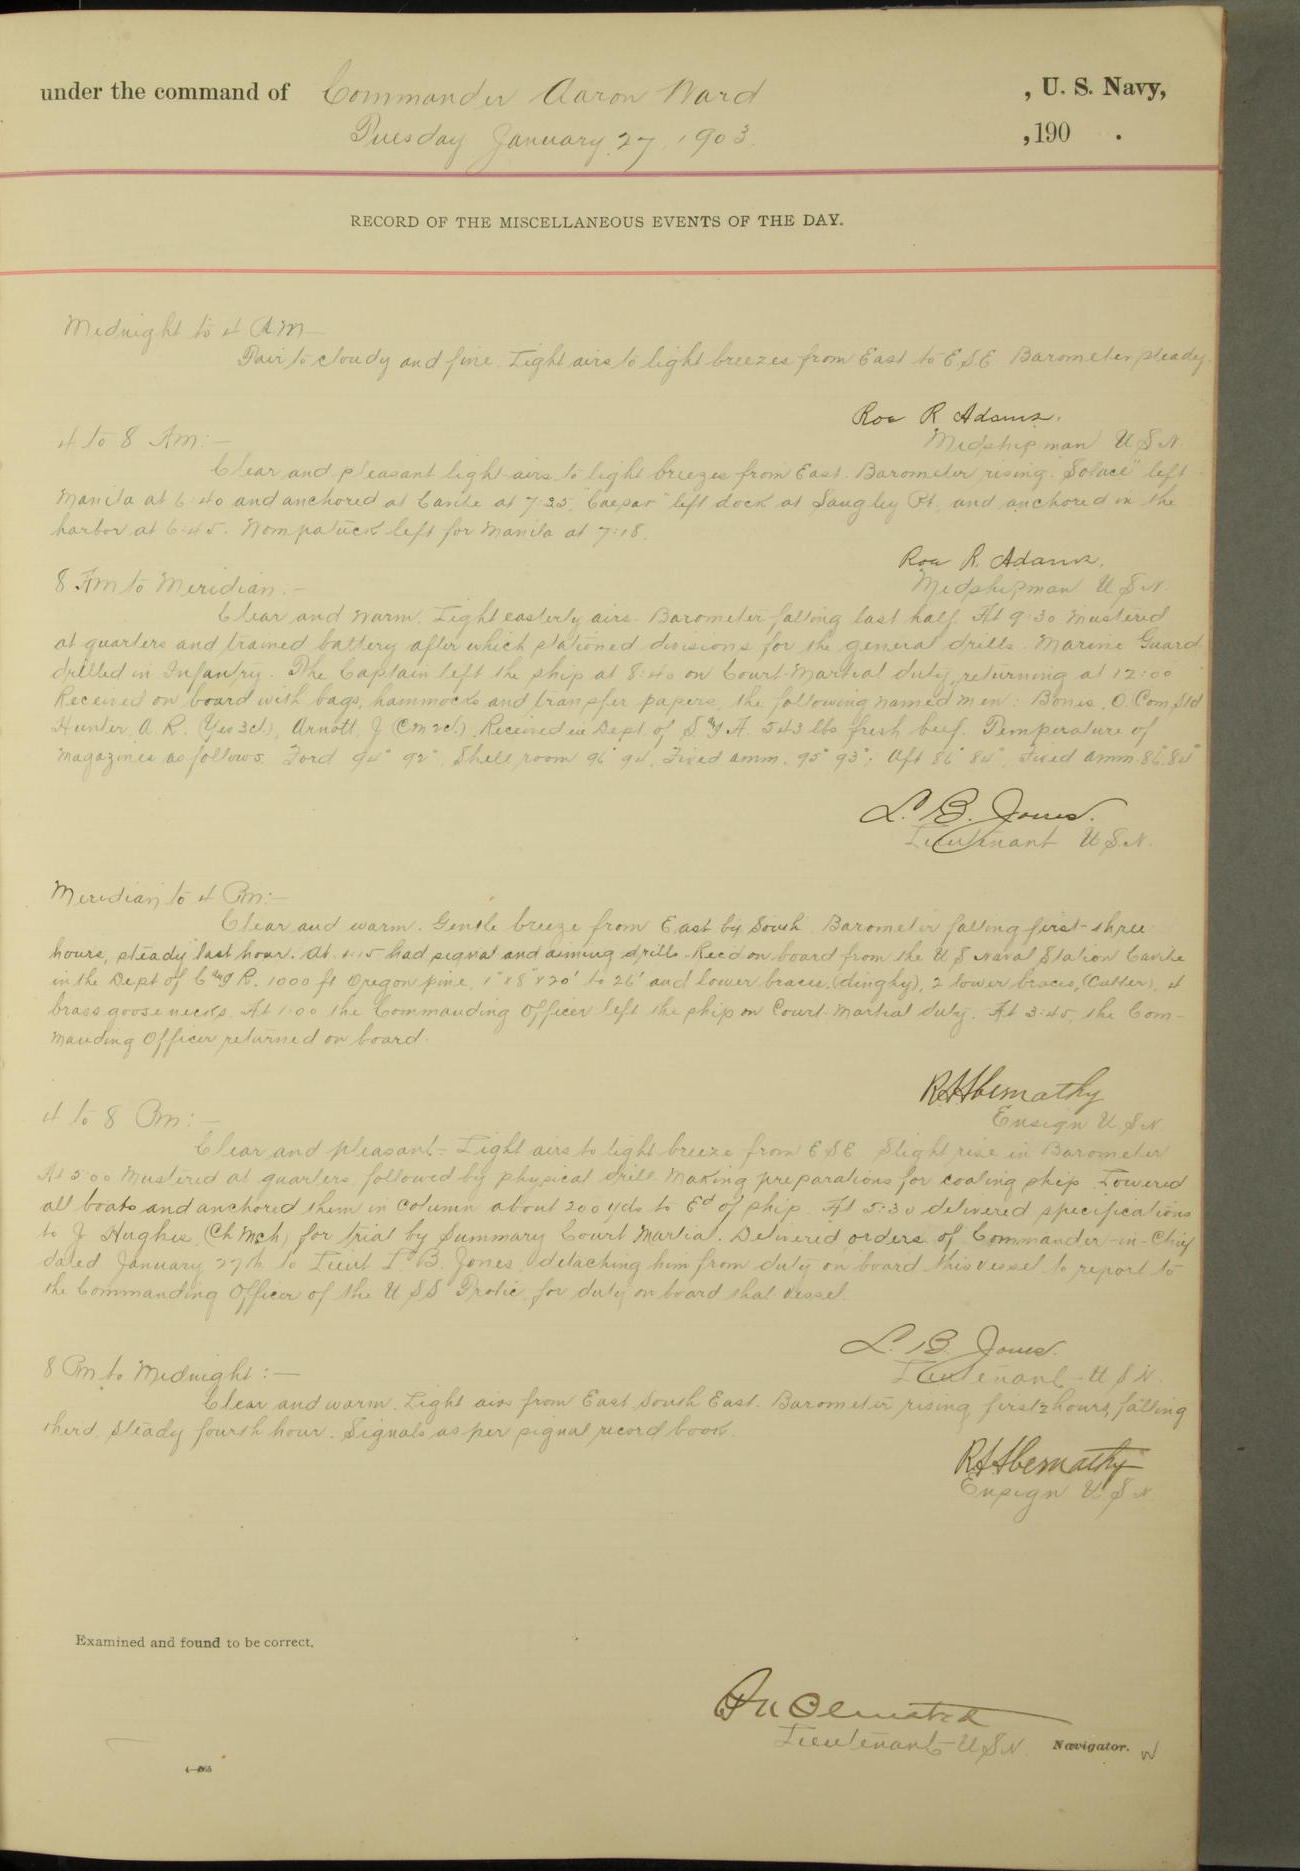 under the command of Commander Aaron Ward , U. S. Navy,
Tuesday January 27, 1903. ,190 .
RECORD OF THE MISCELLANEOUS EVENTS OF THE DAY.
Midnight to 4 A.M—
Fair to cloudy and fine. Light airs to light breezes from East to E.S.E Barometer steady.
Roe R. Adams.
4 to 8 Am:—
Midshipman U S N.
Clear and pleasant light airs to light breezes from East. Barometer rising. "Solace" left
Manila at 6:40 and anchored at Cavite at 7:25. "Caesar" left dock at Sangley Pt. and anchored in the
harbor at 6:45. Wompatuck left for Manila at 7:18.
Roe R. Adams.
8 Am to Meridian.—
Midshipman U S N.
Clear and warm. Light easterly airs. Barometer falling last half. At 9:30 mustered
at quarters and trained battery after which stationed divisions for the general drills. Marine Guard
drilled in Infantry. The Captain left the ship at 8:40 on Court-Martial duty, returning at 12:00
Received on board with bags, hammocks and transfer papers, the following named men: Bonis, O.
Hunter, A R. (Yeo 3cl), Arnott, J (Cm 2cl). Received in Dept. of S. & A. 543 lbs fresh beef. Temperature of
magazines as follows. Ford 94° 92°, Shell room 96° 94, Fixed amm. 95° 93°; Aft 86° 84°, Fixed amm. 86°.84°
L. B. Jones.
Lieutenant U S N.
Meridian to 4 Pm:—
Clear and warm. Gentle breeze from East by South. Barometer falling first three
hours, steady last hour. At 1:15 had signal and aiming drills. Rec'd on board from the U S Naval Station Cavite
in the Dept of C & R. 1000 ft Oregon pine, 1"x8"x20' to 26' and lower braces, (dinghy), 2 lower braces, (Cutter), 4
brass goose necks. At 1:00 the Commanding Officer left the ship on Court-Martial duty. At 3:45, the Com-
manding Officer returned on board.
R H Abernathy
4 to 8 Pm:—
Ensign U S N
Clear and pleasant. Light airs to light breeze from E S E Slight rise in Barometer
At 5:00 Mustered at quarters followed by physical drill. Making preparations for coaling ship. Lowered
all boats and anchored them in column about 200 yds to Ed of ship. At 5:30 delivered specifications
to J Hughes (Ch Mch) for trial by Summary Court Martial. Delivered orders of Commander-in-Chief
dated January 27th to Lieut L. B. Jones, detaching him from duty on board this vessel to report to
the Commanding Officer of the U S S for duty on board that vessel.
L. B. Jones.
8 Pm to Midnight:—
Lieutenant U S N.
Clear and warm. Light airs from East South East. Barometer rising, first 2 hours, falling
third, steady fourth hour. Signals as per signal record book.
R H Abernathy
Ensign U. S N.
Examined and found to be correct.
Lieutenant U S N. Navigator.